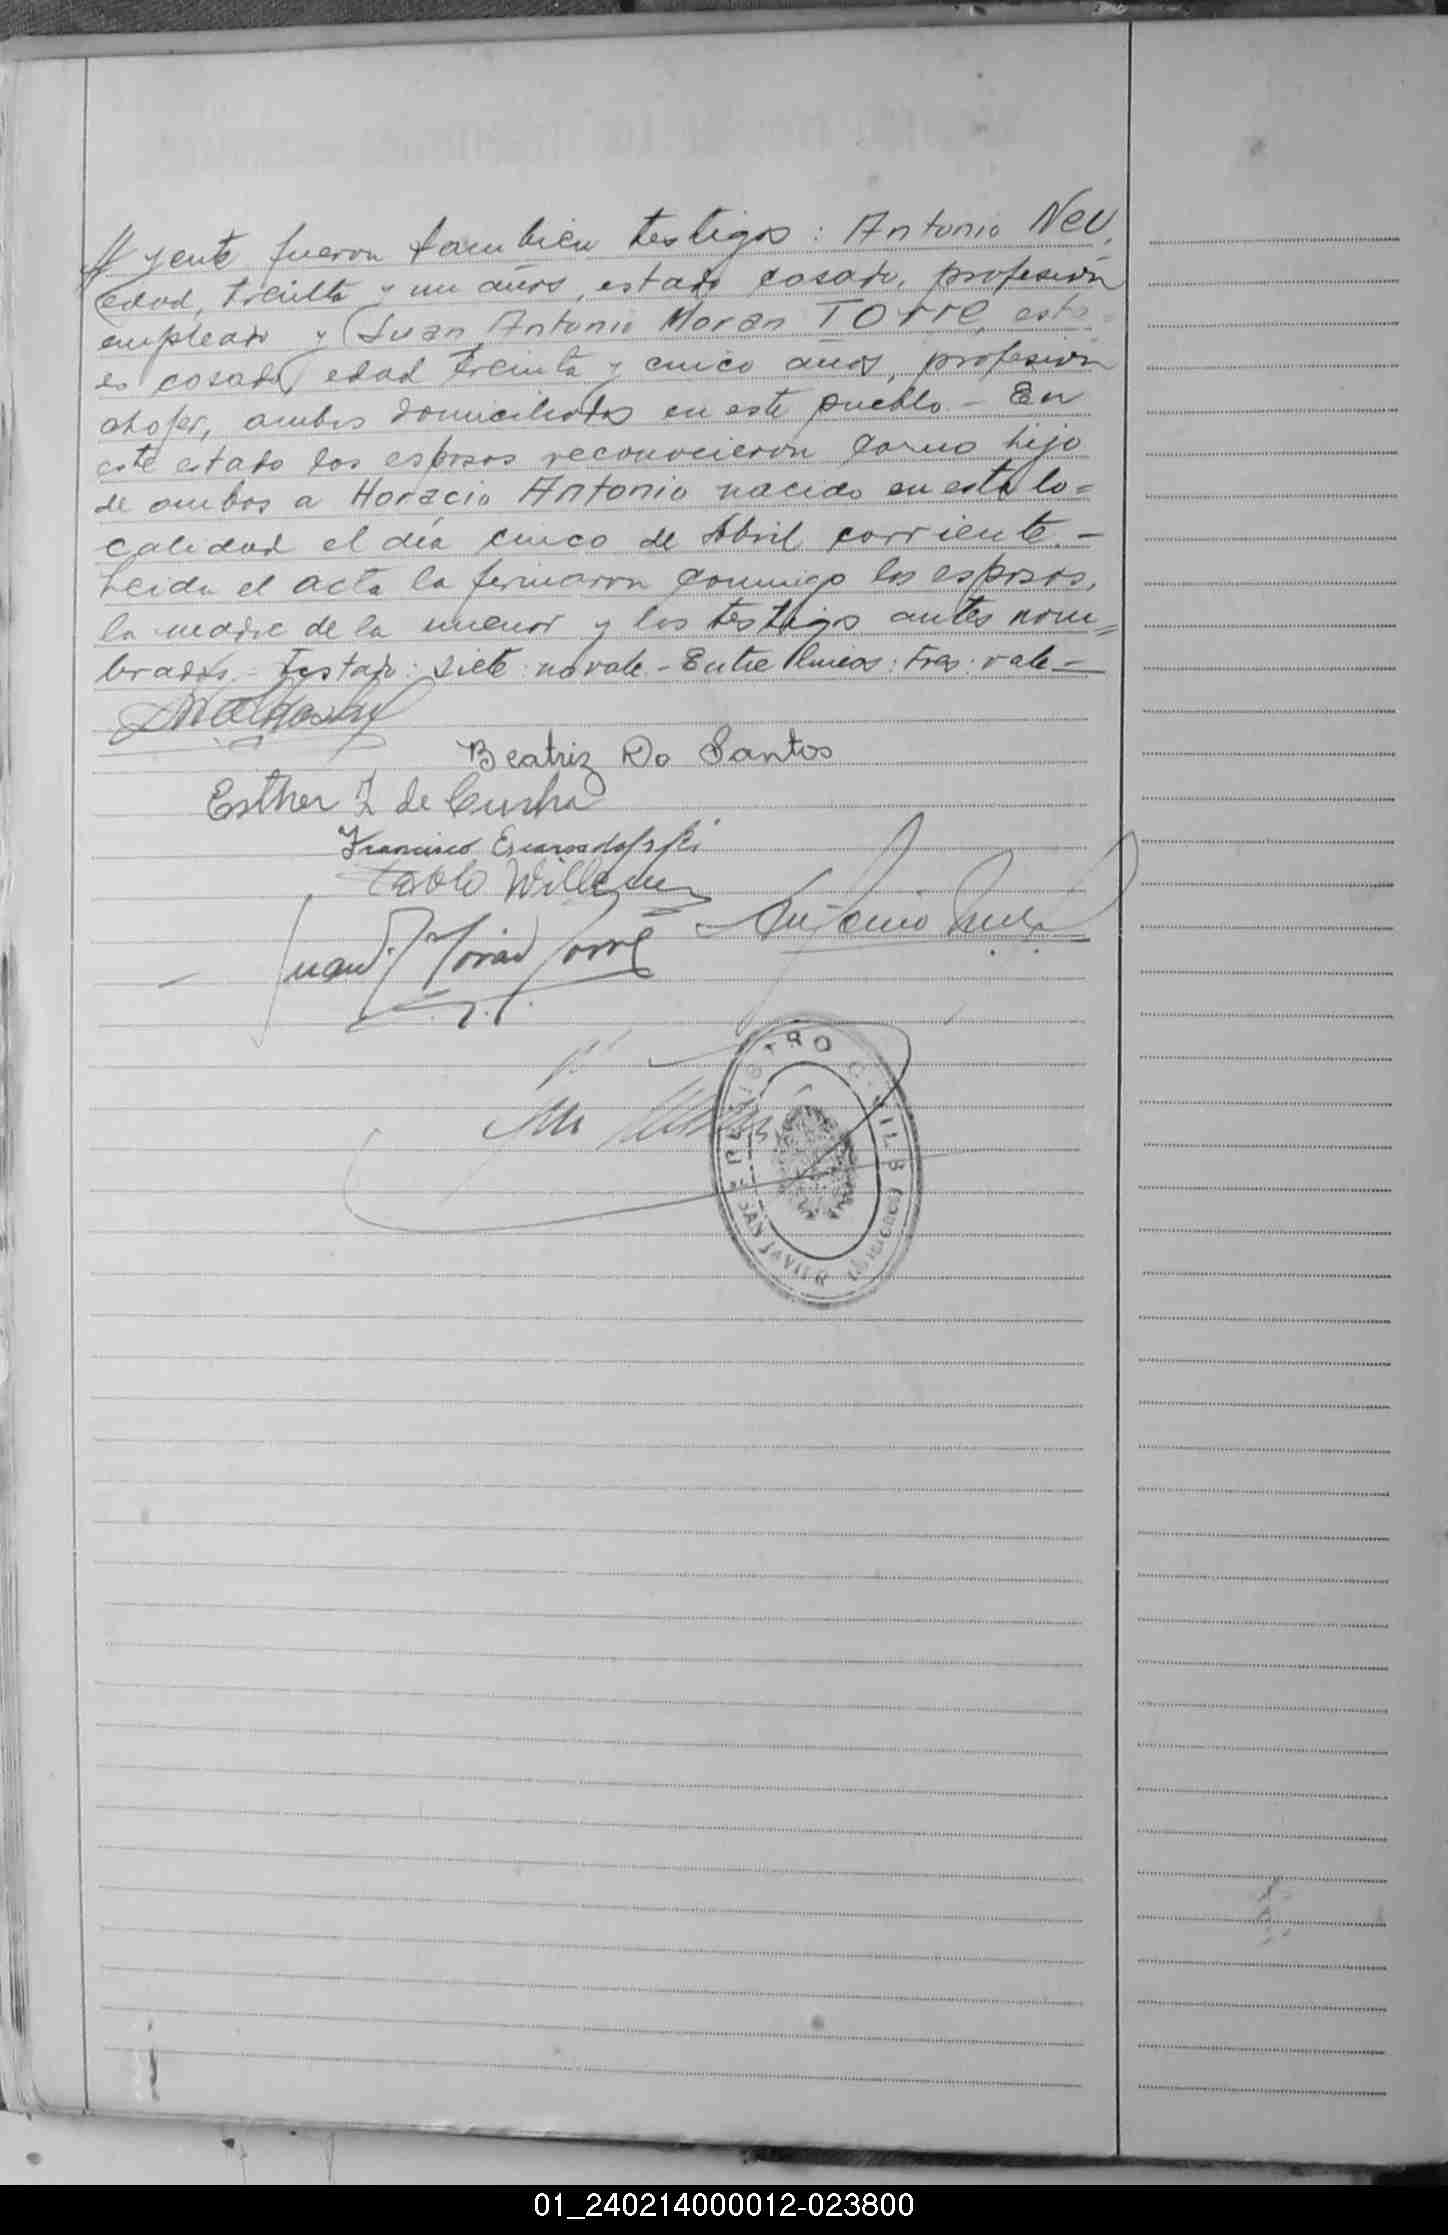 yente fueron tambien testigos: Antonio Neu,
edad, treinta y un años, estado casado, profesión
empleado y Juan Antonio Moran Torre, esta=
do casado, edad treinta y cinco años, profesión
chofer, ambos domiciliados en este pueblo.- En
este estado los esposos reconocieron como hijo
de ambos a Horacio Antonio nacido en esta lo=
calidad el día cinco de Abril corriente.-
Leida el acta la firmaron conmigo los esposos,
la madre de la menor y los testigos antes nom=
brados.- Testado: siete: no vale.- Entre lineas: Tres: vale-
Beatriz Do Santos
Esther Z de Cunha
Francisco
Pablo
Juan A. Moran Torre
Antonio
REGISTRO CIVIL
SAN JAVIER (MISIONES)
01_240214000012-023800